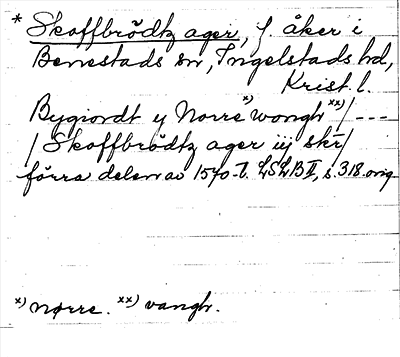 * Skoffbrödtz ager, f. åker i
Benestads sn, Ingelstads hd,
Krist. l.
Bygiordt y Norre x) wongh xx) / ---
/ Skoffbrödtz ager iij skr /
förra delen av 1570-t. LSLB II, s. 318 orig.
x) nørre. xx) vangh.